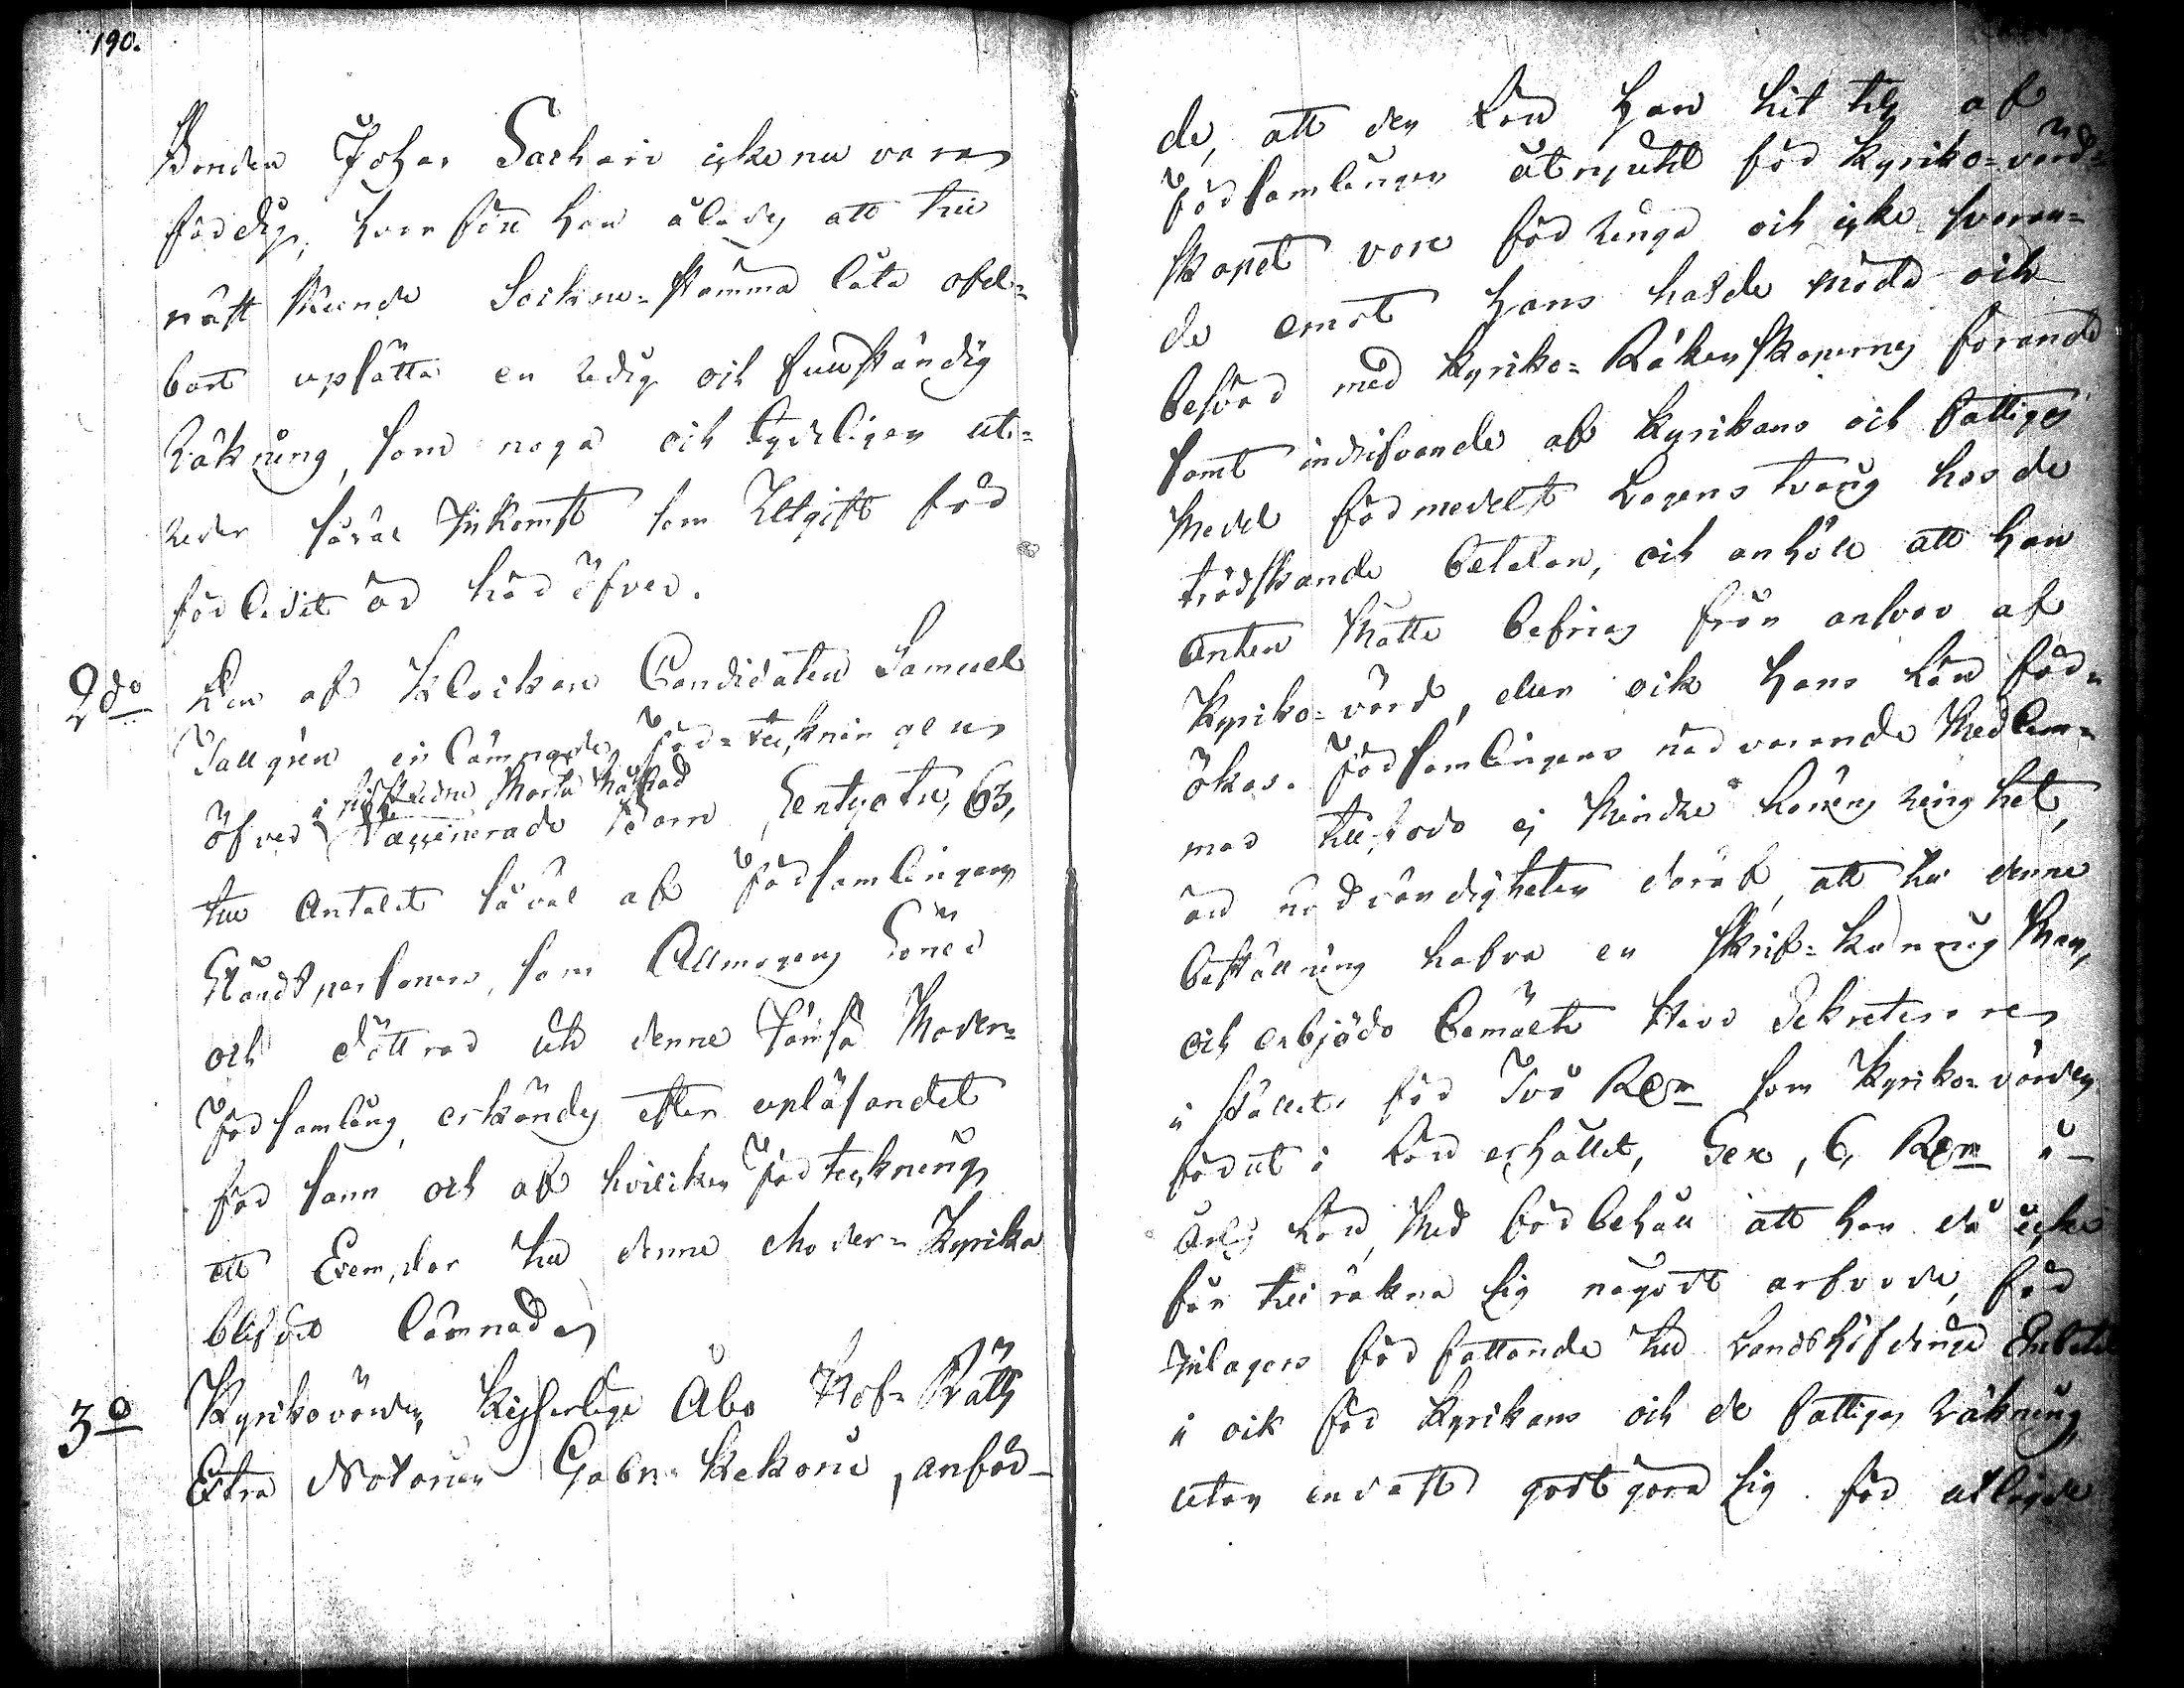 190.
Bonden Johan Sachari icke nu vara
färdig, hvarföre han ålades att till
näst skeende Sockne-stämma låta ofel-
bart upsätta en redig och fullständig
Räkning, som noga och tydeligen ut-
reder såväl Inkomst som Utgift för
förledit år här öfver.
2do Den af Klockaren Candidaten Samuel
Tallgren inlämnade Förteckningen
i sistledne Martii Månad
öfver Vaccinerade Barn, Sextiotre, 63,
till Antalet såväl af Församlingens
Ståndspersoners, som Allmogens Söner
och döttrar uti denne Jämsä Moder-
Församling, erkändes efter upläsandet
för sann och af hvilcken Förteckning
ett Exemplar till denne Moder-Kyrika
blifvit lämnadt
3o Kyrikovärden, Kejserlige Åbo Hof-Rätts
Extra Notarien Gabr. Kekoni, anför-
de, att den Lön han hit tils af
Församlingen åtnjutit för Kyriko-värd-
skapet vore för ringa och icke svaran-
de emot hans hafde möda och
besvär med Kyriko-Räkenskapernes förande
samt indrifvande af Kyrikans och Fattiges
Medel förmedelst Lagens tvång hos de
tredskande betalare, och anhöll att han
antingen måtte befrias från ansvar af
Kyriko-värd, eller ock hans Lön för-
ökas. Församlingens närvarande Medlem-
mar till-förde ej mindre Lönens ringhet,
än nödvändigheten deraf, att till denne
beställning hafva en skrif-kunnig Man,
och erbjödo bemälte Herr Sekreterare
i stället för Två Rbr som Kyriko-värden
förut i Lön erhållit, Sex, 6, Rbr i
årlig Lön, Med förbehåll att han då icke
får tillräkna sig något arfvode, för
Inlagors författande till Landshöfdinge Embetet
i och för Kyrikans och de Fattigas räkning
utan endast godtgöra sig för utlägde